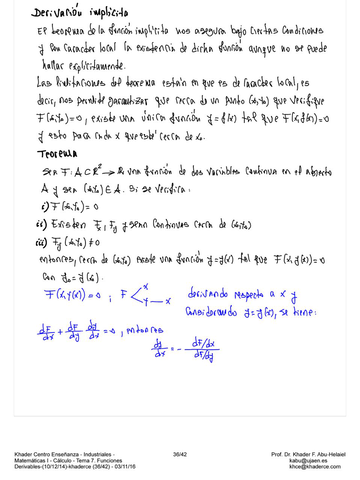 Derivación implícita
El teorema de la función implícita nos asegura bajo ciertas condiciones
y con caracter local la existencia de dicha función aunque no se puede
hallar explícitamente.
Las limitaciones del teorema están en que es de caracter local, es
decir, nos permite garantizar que cerca de un punto (x₀,y₀) que verifique
F(x₀,y₀)=0, existe una única función y=f(x) tal que F(x,f(x))=0
y esto para cada x que esté cerca de x₀.
Teorema
Sea F: A⊂R² → R una función de dos variables continua en el abierto
A y sea (x₀,y₀)∈A. Si se verifica:
i) F(x₀,y₀)=0
ii) Existen Fx, Fy y sean continuas cerca de (x₀,y₀)
iii) Fy(x₀,y₀)≠0
entonces, cerca de (x₀,y₀) existe una función y=y(x) tal que F(x,y(x))=0
con y₀=y(x₀).
F(x,y(x))=0 ; F < x y — x derivando respecto a x y
considerando y=y(x), se tiene:
dF/dx + dF/dy dy/dx = 0, entonces
dy/dx = - dF/dx / dF/dy
Khader Centro Enseñanza - Industriales -
Matemáticas I - Cálculo - Tema 7. Funciones
Derivables-(10/12/14)-khaderce (36/42) - 03/11/16
36/42
Prof. Dr. Khader F. Abu-Helaiel
kabu@ujaen.es
khce@khaderce.com